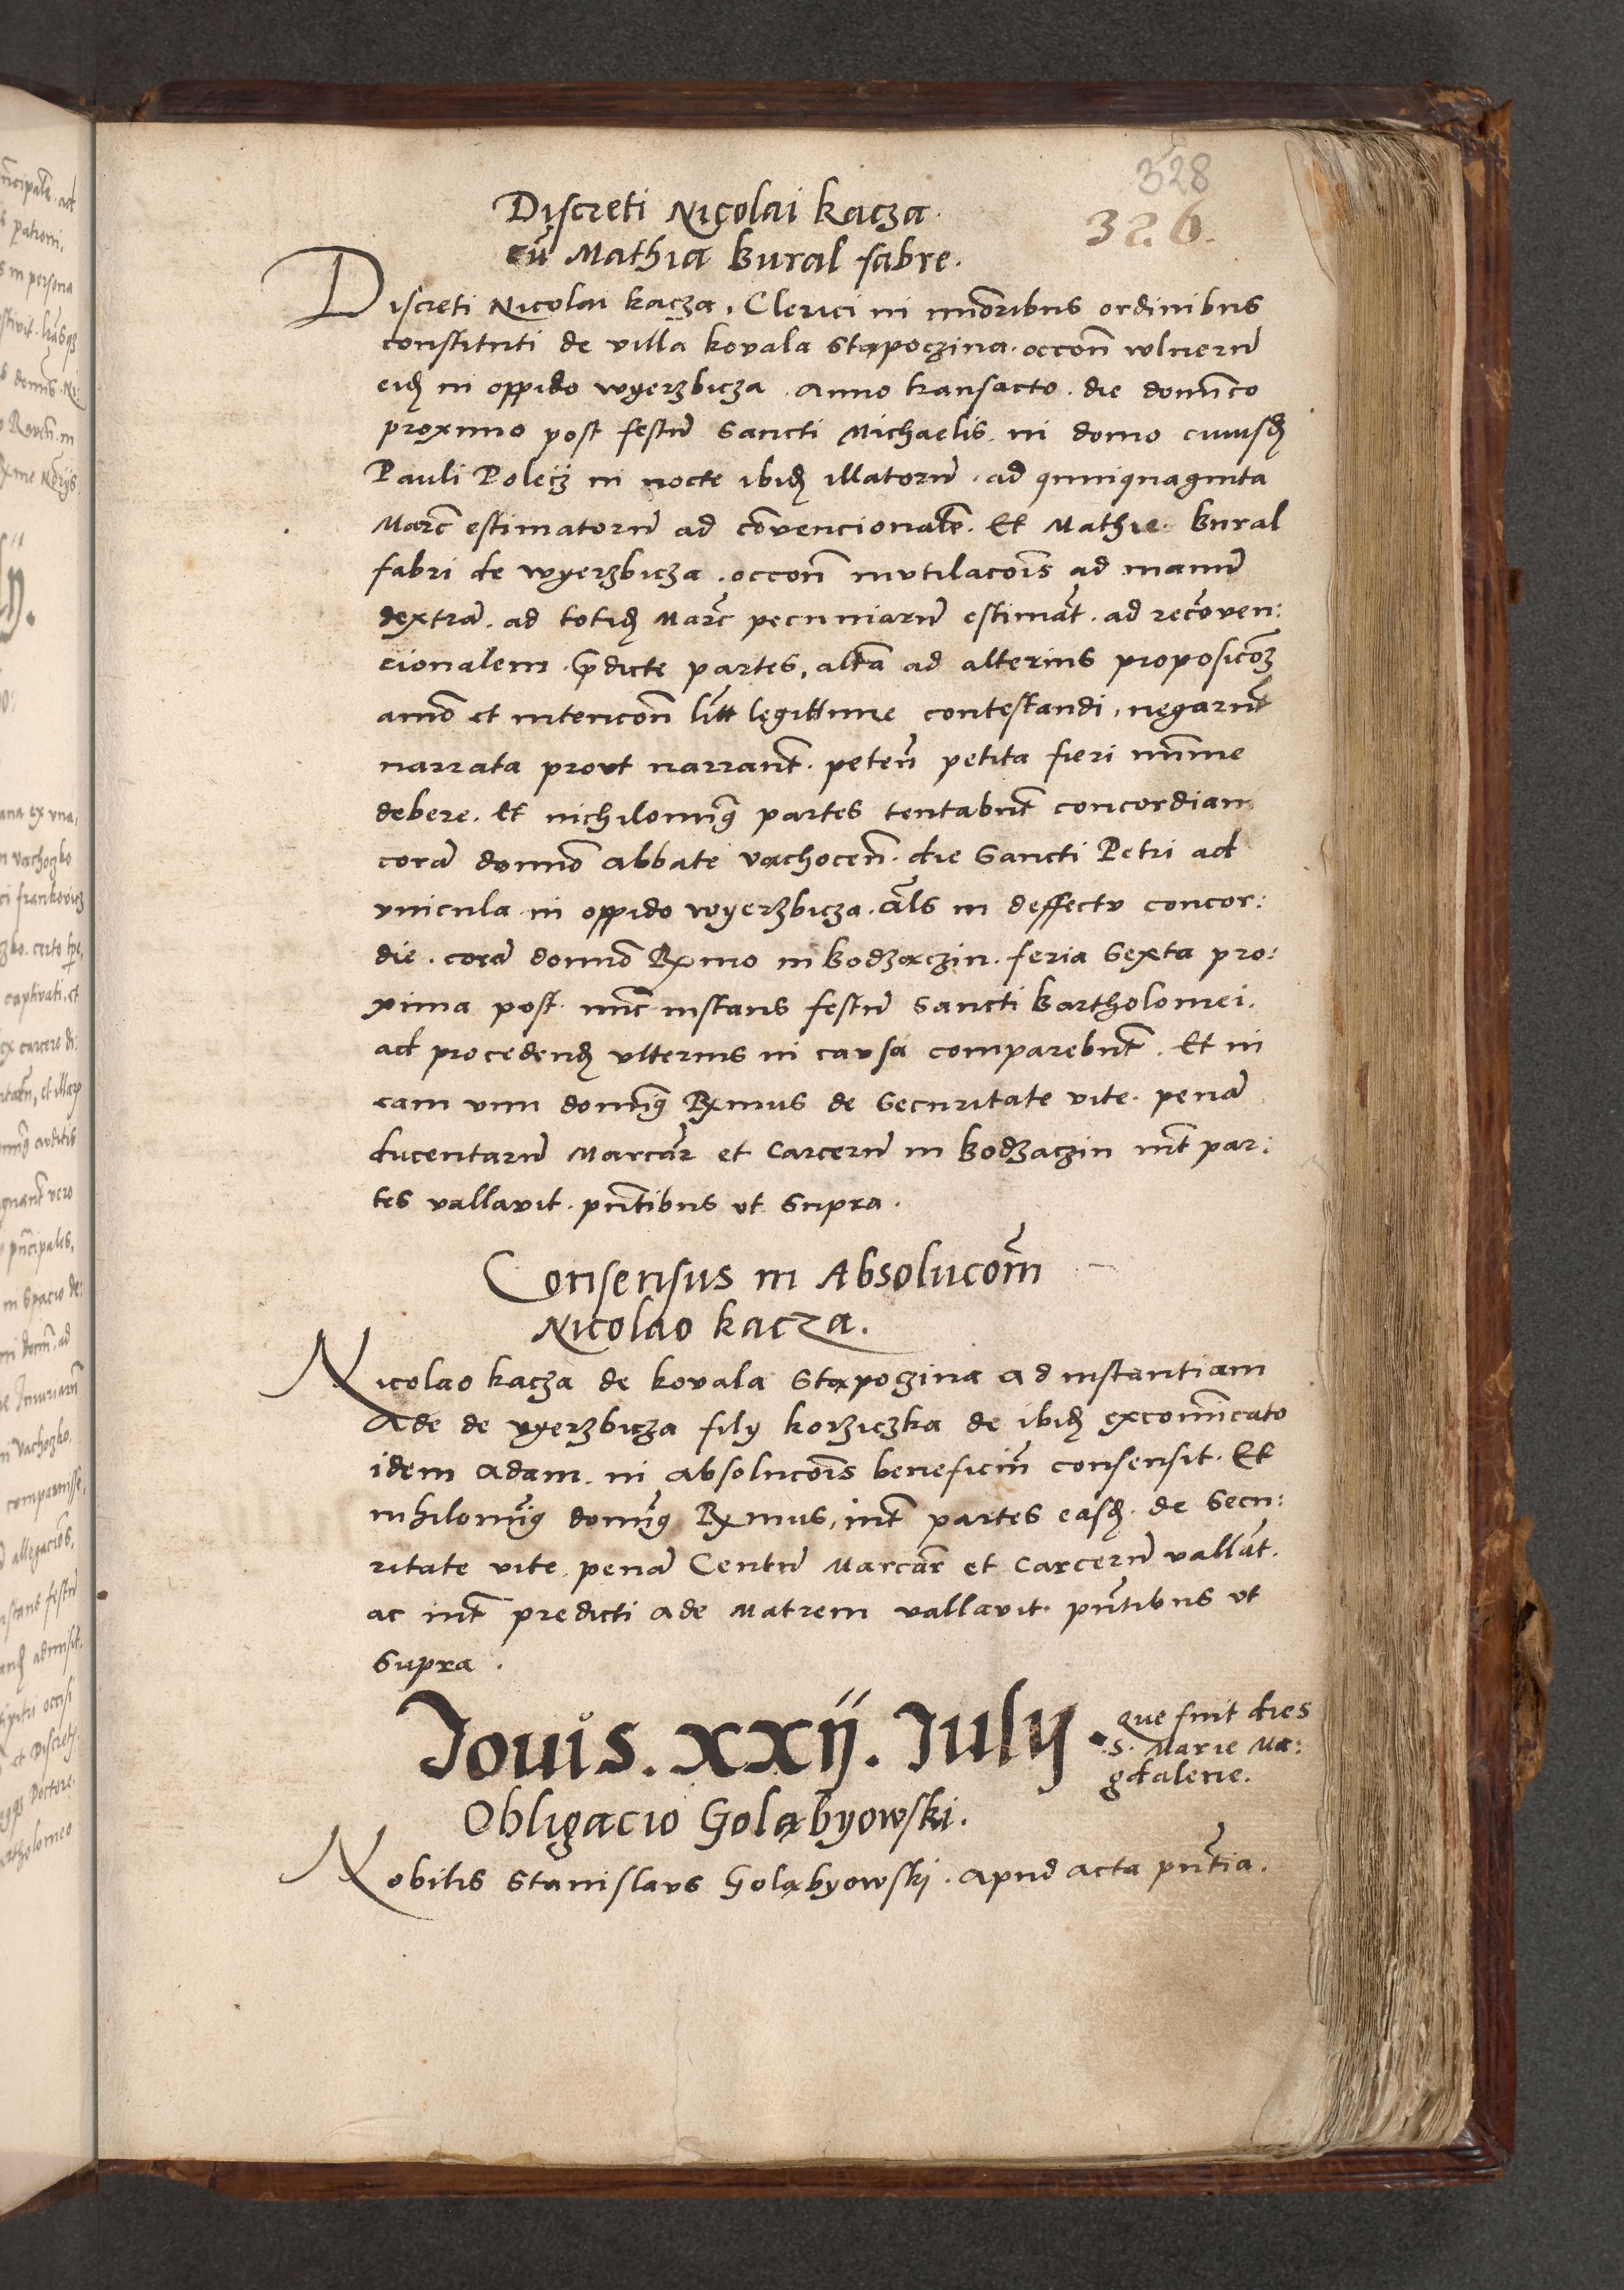 328
326.
Discreti Nicolai kacza
cũ Mathia Bural fabre.
Discreti Nicolai kacza, Clerici in mĩoribus ordinibus
constituti de villa kovala Stąpoczina. occoñ wlnerũ
eidẽ in oppido wyerzbicza. Anno transacto. die domĩco
proximo post festũ Sancti Michaelis. in domo cuiusdã
Pauli Polecz in nocte ibidẽ illatorũ. ad quinquaginta
Marc̃ estimatorũ ad cõvencionalẽ. Et Mathie Bural
fabri de wyerzbicza. occoñ mutilacoĩs ad manũ
dextrã. ad totidẽ Marc̃ pecuniarũ estimat̃. ad recõven:
cionalem p̃dicte partes, altã ad alterius proposicõẽ
aĩo et intencoñ lĩtẽ legittime contestandi, negarũt
narrata prout narrant̃. peteñ petita fieri mĩme
debere. Et nichilominꝰ partes tentabũt concordiam
corã domĩo Abbate vachoceñ. die Sancti Petri ad
vincula in oppido wyerzbicza. al̃s in deffectu concor:
die. corã domĩo Rx̃mo in Bodzączin. feria Sexta pro:
xima post nũc instans festũ Sancti Bartholomei.
ad procedendũ ulterius in causa comparebũt. Et in
eam vim domĩꝰ Rx̃mus de Securitate vite. penã
ducentarũ Marcar̃ et Carcerũ in Bodzaczin int̃ par:
tes vallavit. pñtibus ut Supra.
Consensus in Absolucoẽm
Nicolao kacza.
Nicolao kacza de kovala Stąpoczina Ad instantiam
Ade de wyerzbicza filij korziczka de ibidẽ excomĩcato
idem Adam. in Absolucoĩs beneficiũ consensit. Et
nihilomĩꝰ domĩꝰ Rx̃mus, int̃ partes easdẽ. de Secu:
ritate vite. penã Centũ Marcar̃ et Carcerũ vallat̃.
ac int̃ predicti Ade Matrem vallavit. pñtibus ut
Supra.
Jouis. xxij. Julij.
que fuit dies
S. Marie Ma:
gdalene.
Obligacio Goląbyowski.
Nobilis Stanislaus Goląbyowskj. Apud acta pñtia.